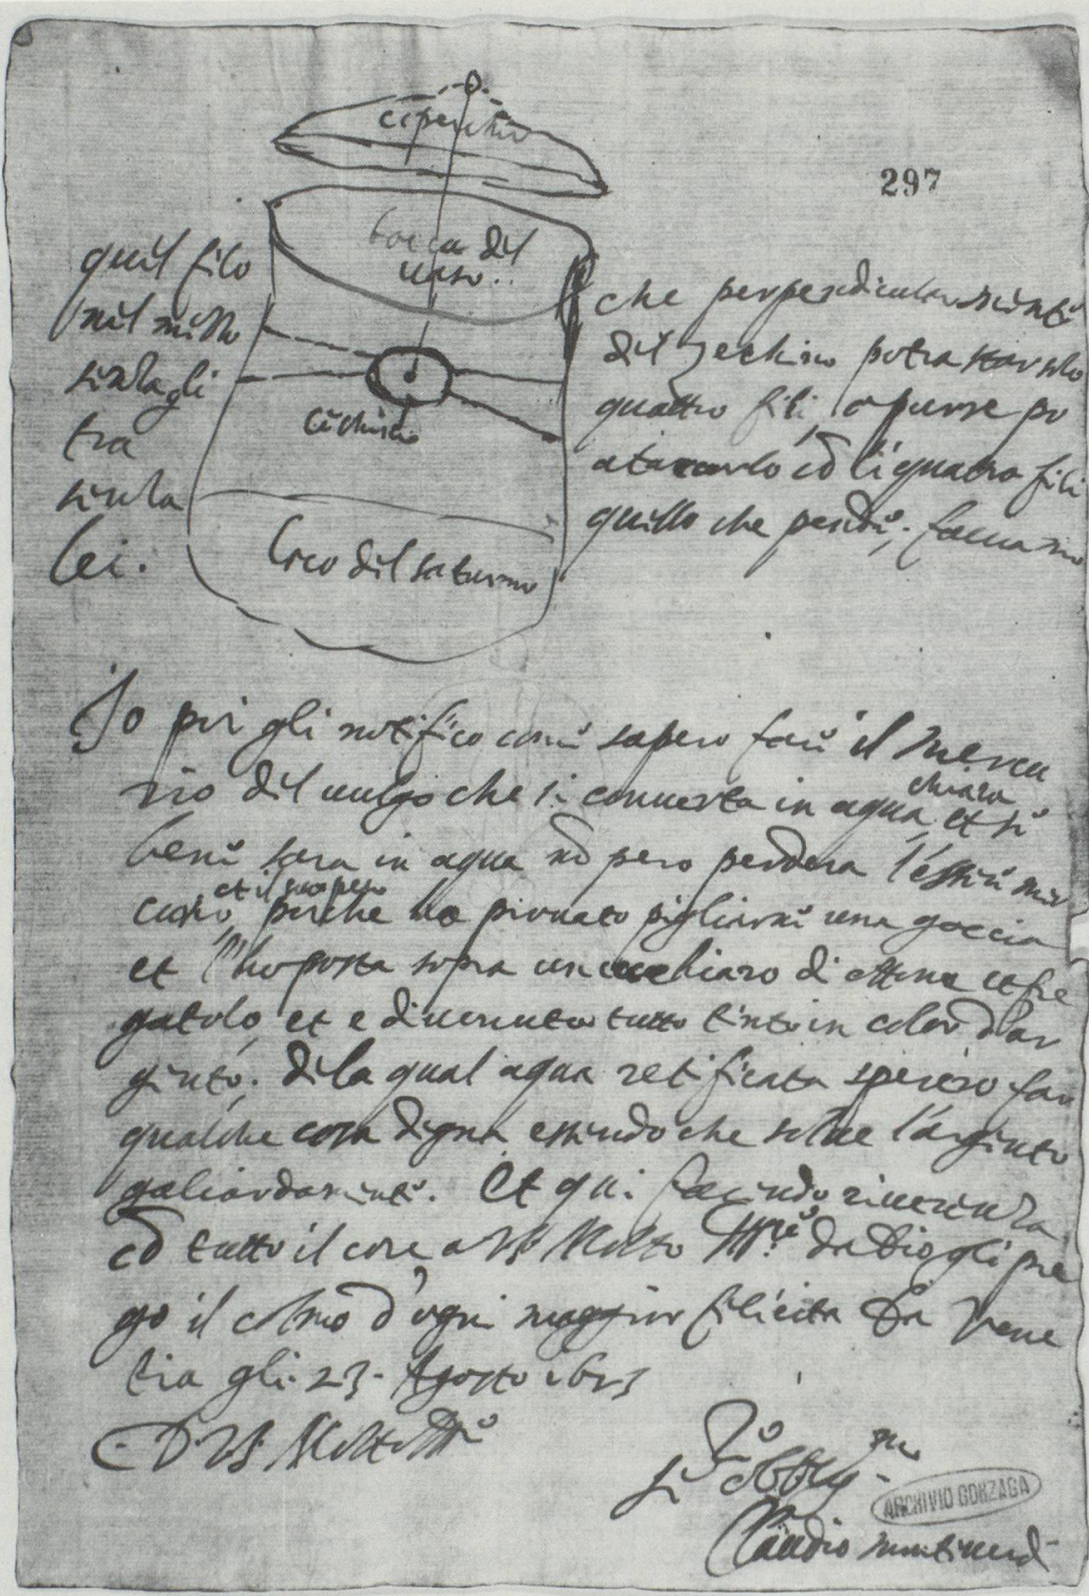 297
coperchio
bocca del
vaso.
quel filo
nel mezzo
senza gli
tra
senza
lei.
che perpendicularmente
del zechino potra
quattro fili, o purre po
atacarlo cō li quatro fili
quello che pende,
Cechino
loco del saturno
Io poi gli notifico come sapero fare il mercu
rio del vulgo che si converta in aqua chiara, et se
bene sara in aqua nō pero perdera l'essere mer
curio, et il suo peso, perche ho provato pigliarne una goccia
et l'ho posta sopra un cuchiaro di ottone et fre
gatolo, et e divenuto tutto tinto in color d'ar
gento, dela qual aqua retificata spererò far
qualche cosa degna essendo che solve l'argento
galiardamente. Et qui facendo riverenza
cō tutto il core a V.S. Molto Ill.re da Dio gli pre
go il colmo d'ogni maggior felicita da Vene
tia gli 23. Agosto 1625
D. V.S. Molto Ill.re
Se.re obblig.mo
Claudio Monteverdi
ARCHIVIO GONZAGA